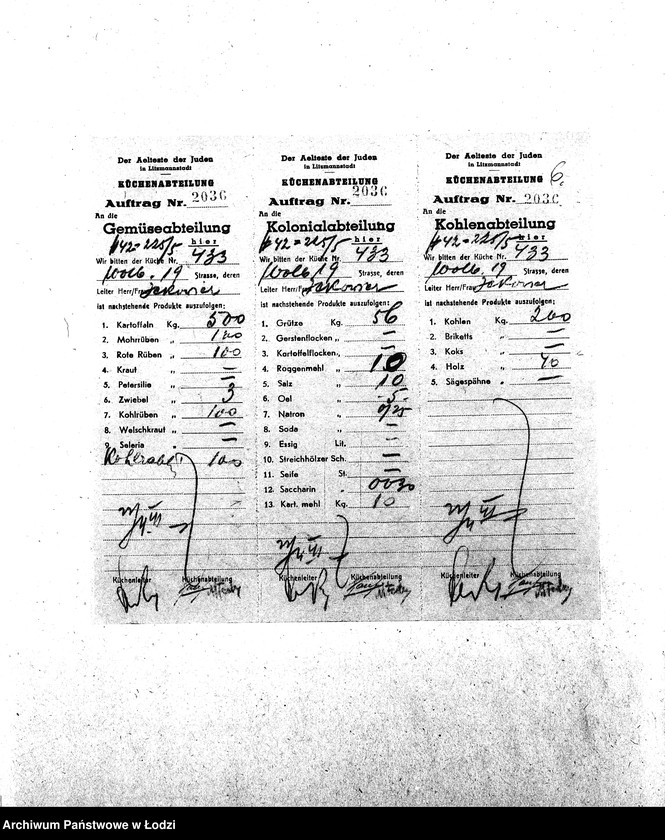 Der Aelteste der Juden
in Litzmannstadt
KÜCHENABTEILUNG
Auftrag Nr. 2036
An die
Gemüseabteilung
hier
Wir bitten der Küche Nr. 433
19 Strasse, deren
Leiter Herr/Frau
ist nachstehende Produkte auszufolgen:
1. Kartoffeln Kg. 500
2. Mohrrüben „
3. Rote Rüben „ 100
4. Kraut „ —
5. Petersilie „ —
6. Zwiebel „ 3
7. Kohlrüben „ 100
8. Welschkraut „ —
9. Seleria „ —
Kohlrabi 100
Küchenleiter Küchenabteilung
Der Aelteste der Juden
in Litzmannstadt
KÜCHENABTEILUNG
Auftrag Nr. 2036
An die
Kolonialabteilung
hier
Wir bitten der Küche Nr. 433
19 Strasse, deren
Leiter Herr/Frau
ist nachstehende Produkte auszufolgen:
1. Grütze Kg. 56
2. Gerstenflocken „ —
3. Kartoffelflocken „ —
4. Roggenmehl „ 10
5. Salz „ 10
6. Oel „ 5
7. Natron „
8. Soda „ —
9. Essig Lit. —
10. Streichhölzer Sch. —
11. Seife St. —
12. Saccharin „
13. Kart. mehl Kg. 10
Küchenleiter Küchenabteilung
Der Aelteste der Juden
in Litzmannstadt
KÜCHENABTEILUNG 6.
Auftrag Nr. 2036
An die
Kohlenabteilung
hier
Wir bitten der Küche Nr. 433
19 Strasse, deren
Leiter Herr/Frau
ist nachstehende Produkte auszufolgen:
1. Kohlen Kg. 200
2. Briketts „ —
3. Koks „ —
4. Holz „ 40
5. Sägespähne „ —
Küchenleiter Küchenabteilung
Archiwum Państwowe w Łodzi